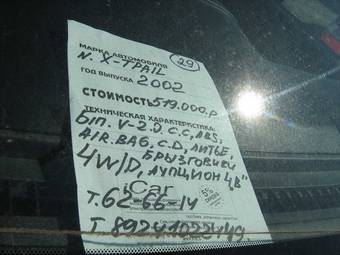 29
МАРКА АВТОМОБИЛЯ
N. X-TPAIL
ГОД ВЫПУСКА 2002
СТОИМОСТЬ 519.000.р
ТЕХНИЧЕСКАЯ ХАРАКТЕРИСТИКА:
Б/П. V-2.0. C.C, ABS,
AIR.BAG, C.D, ЛИТЬЕ,
БРЫЗГОВИКИ
4W/D, АУКЦИОН 4,В"
iCar
5%
Т. 62-66-14
Т. 89241022449.